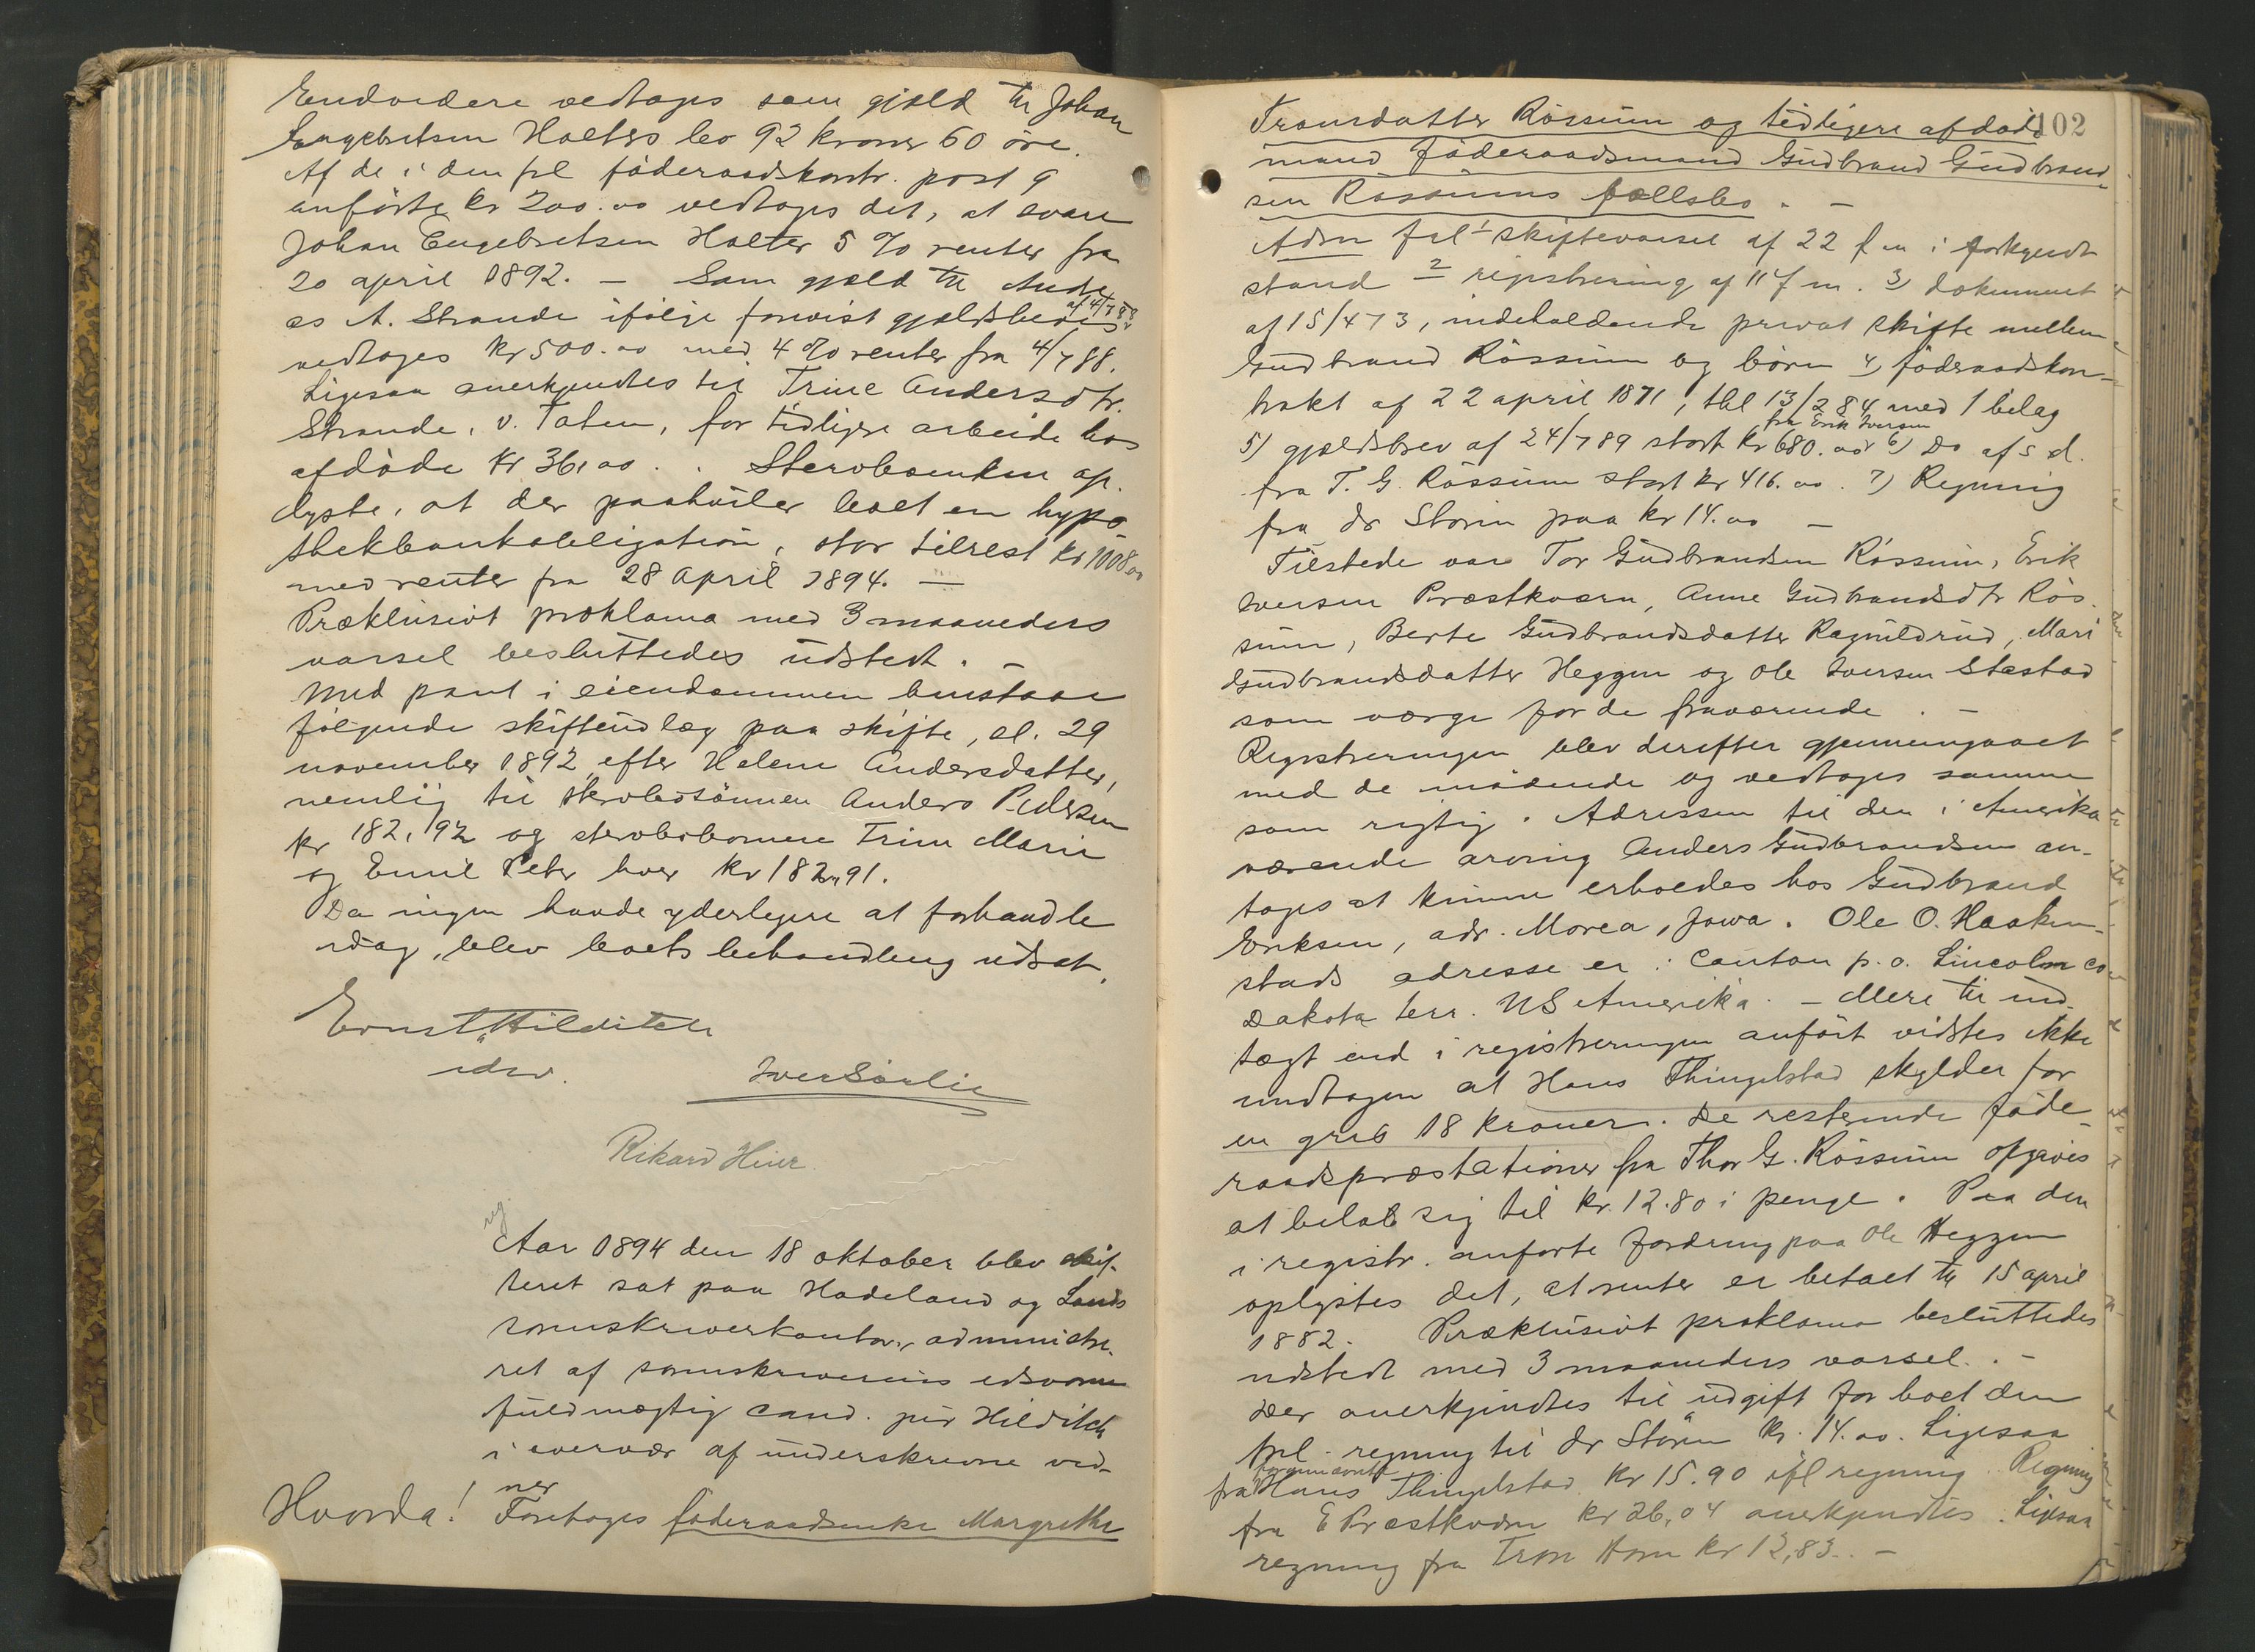 Endvidere vedtoges som gjæld til Johan
Engebretsen Holters bo 92 kroner 60 öre.
Af de i den frl föderaadskontr. post 9
anförte kr 200.00 vedtoges det, at svare
Johan Engebretsen Holter 5 % renter fra
20 april 1892. – Som gjæld til Ande
as A. Strande ifölge forevist gjældsbevis af 4/7 88
vedtoges kr 500.00 med 4 % renter fra 4/7 88.
Ligesaa anerkjendtes til Trine Andersdtr.
Strande, v. Toten, for tidligere arbeide hos
afdöde kr 36,00. Stervboenken op-
lyste, at der paahviler boet en hypo
thekbankobligation, stor tilrest kr 1008.00
med renter fra 28 April 1894. –
Præklusivt proklama med 3 maaneders
varsel besluttedes udstedt. –
Med pant i eiendommen henstaar
fölgende skifteudlæg paa skifte, sl. 29
november 1892 efter Helene Andersdatter,
nemlig til stervbosönnen Anders Pedersen
kr 182,92 og stervbobornene Trine Marie
og Emil Peter hver kr 182,91.
Da ingen havde yderligere at forhandle
idag, blev boets behandling udsat.
Ernst Hilditch
edsv.
Iver Sörlie
Rikard Hier
reg
Aar 1894 den 18 oktober blev skif-
teret sat paa Hadeland og Lands
sorenskriverkontor, administre-
ret af sorenskriverens edsvorne
fuldmægtig cand. jur Hilditch
i overvær af underskrevne vid-
ner
Hvorda! Foretoges föderaadsenke Margrethe
102
Tronsdatter Rössum og tidligere afdöde
mand föderaadsmand Gudbrand Gudbrand-
sen Rössums fællesbo. –
Adm frl 1 skiftevarsel af 22 f m i forkyndt
stand 2 registrering af 11 f m. 3) dokument
af 15/4 73, indeholdende privat skifte mellem
Gudbrand Rössum og börn 4) föderaadskon-
trakt af 22 april 1871, thl 13/2 84 med 1 bilag
5) gjældsbrev af 24/7 89 stort kr 680.00 fra Erik Iversen 6) Do af s d.
fra T. G. Rössum stort kr 416.00. 7) Regning
fra dr Storm paa kr 14.00 –
Tilstede var Tor Gudbrandsen Rössum, Erik
Iversen Præstkværn, Anne Gudbrandsdtr Rös-
sum, Berte Gudbrandsdatter Ragnildrud, Mari
Gudbrandsdatter Heggen og Ole Iversen Stastad
som værge for de fraværende. –
Registreringen blev derefter gjennemgaaet
med de mödende og vedtoges samme
som rigtig. Adressen til den i Amerika
værende arving Anders Gudbrandsen an-
toges at kunne erholdes hos Gudbrand
Eriksen, adr. Morea, Jowa. Ole O. Hasken-
stads adresse er: Canton p. o. Lincoln co
Dakota terr. US Amerika. – Mere til ind-
tægt end i registreringen anfört vidstes ikke
undtagen at Hans Thingelstad skylder for
en gris 18 kroner. De resterende föde-
raadspræstationer fra Thor G. Rössum opgaves
at beløb sig til kr. 12.80 i penge. Paa den
i registr. anförte fordring paa Ole Heggen
oplystes det, at renter er betalt til 15 april
1882. Præklusivt proklama besluttedes
udstedt med 3 maaneders varsel. –
Der anerkjendtes til udgift for boet den
frl. regning til dr Storm kr. 14.00. Ligesaa
fra Hans Thingelstad kr 15.90 ifl regning. Regning
fra E Præstkværn kr 26,04 anerkjendtes. Ligesaa
regning fra Tron Horn kr 12,83. –